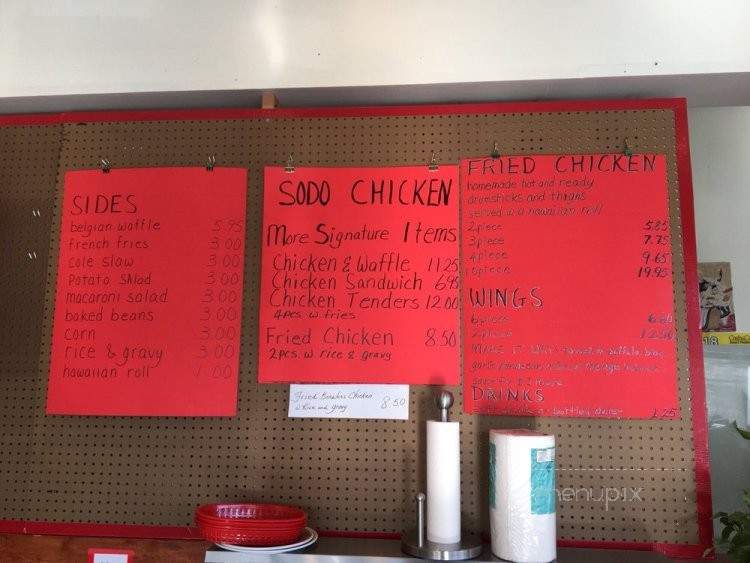 SIDES
belgian waffle 5.95
french fries 3.00
cole slaw 3.00
Potato Salad 3.00
macaroni salad 3.00
baked beans 3.00
corn 3.00
rice & gravy 3.00
hawaiian roll 1.00
SODO CHICKEN
More Signature Items
Chicken & Waffle 11.25
Chicken Sandwich 6.95
Chicken Tenders 12.00
4pcs. w fries
Fried Chicken 8.50
2pcs. w rice & gravy
Fried Boneless Chicken
w Rice and gravy 8.50
FRIED CHICKEN
homemade hot and ready
drumsticks and thighs
served w a hawaiian roll
2piece 5.85
3piece 7.75
4piece 9.65
piece 19.95
WINGS
6piece
piece 12.50
buffalo
DRINKS
bottled 1.25
menupix